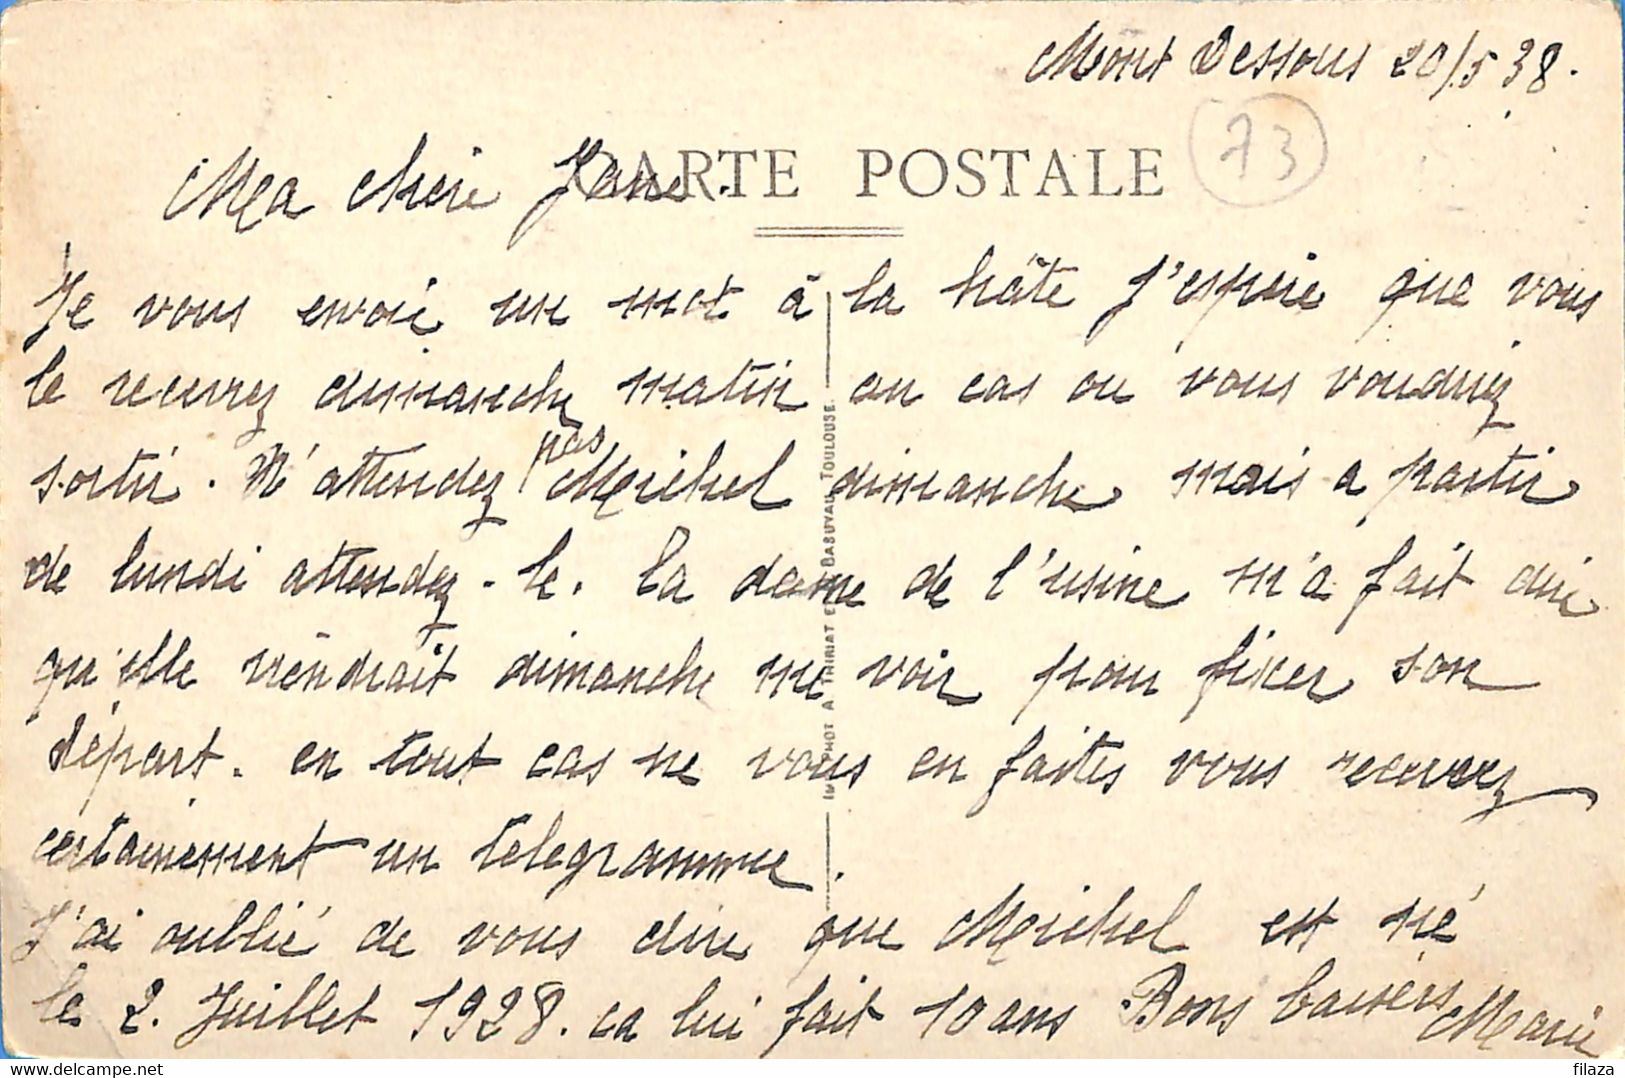 Mont Dessous 20/5 38.
73
CARTE POSTALE
Ma chère Jane.
Je vous envoie un mot à la hâte J'espère que vous
le recevrez dimanche matin au cas ou vous voudriez
sortir. N'attendez pas Michel dimanche mais a partir
de lundi attendez-le. La dame de l'usine m'a fait dire
qu'elle viendrait dimanche me voir pour fixer son
départ. en tout cas ne vous en faites vous recevrez
certainement un telegramme.
J'ai oublié de vous dire que Michel est né
le 2. Juillet 1928. ca lui fait 10 ans Bons baisers Marie
IMP. PHOT A. THIRIAT ET BASUYAU TOULOUSE.
filaza
delcampe.net